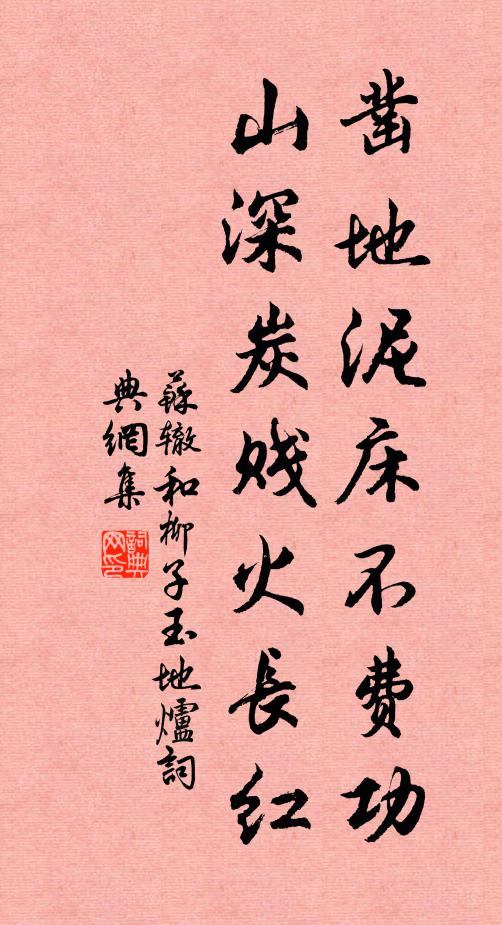 凿地泥床不费功
山深炭贱火长红
苏辙和柳子玉地爐詞
典網集
詞典网印